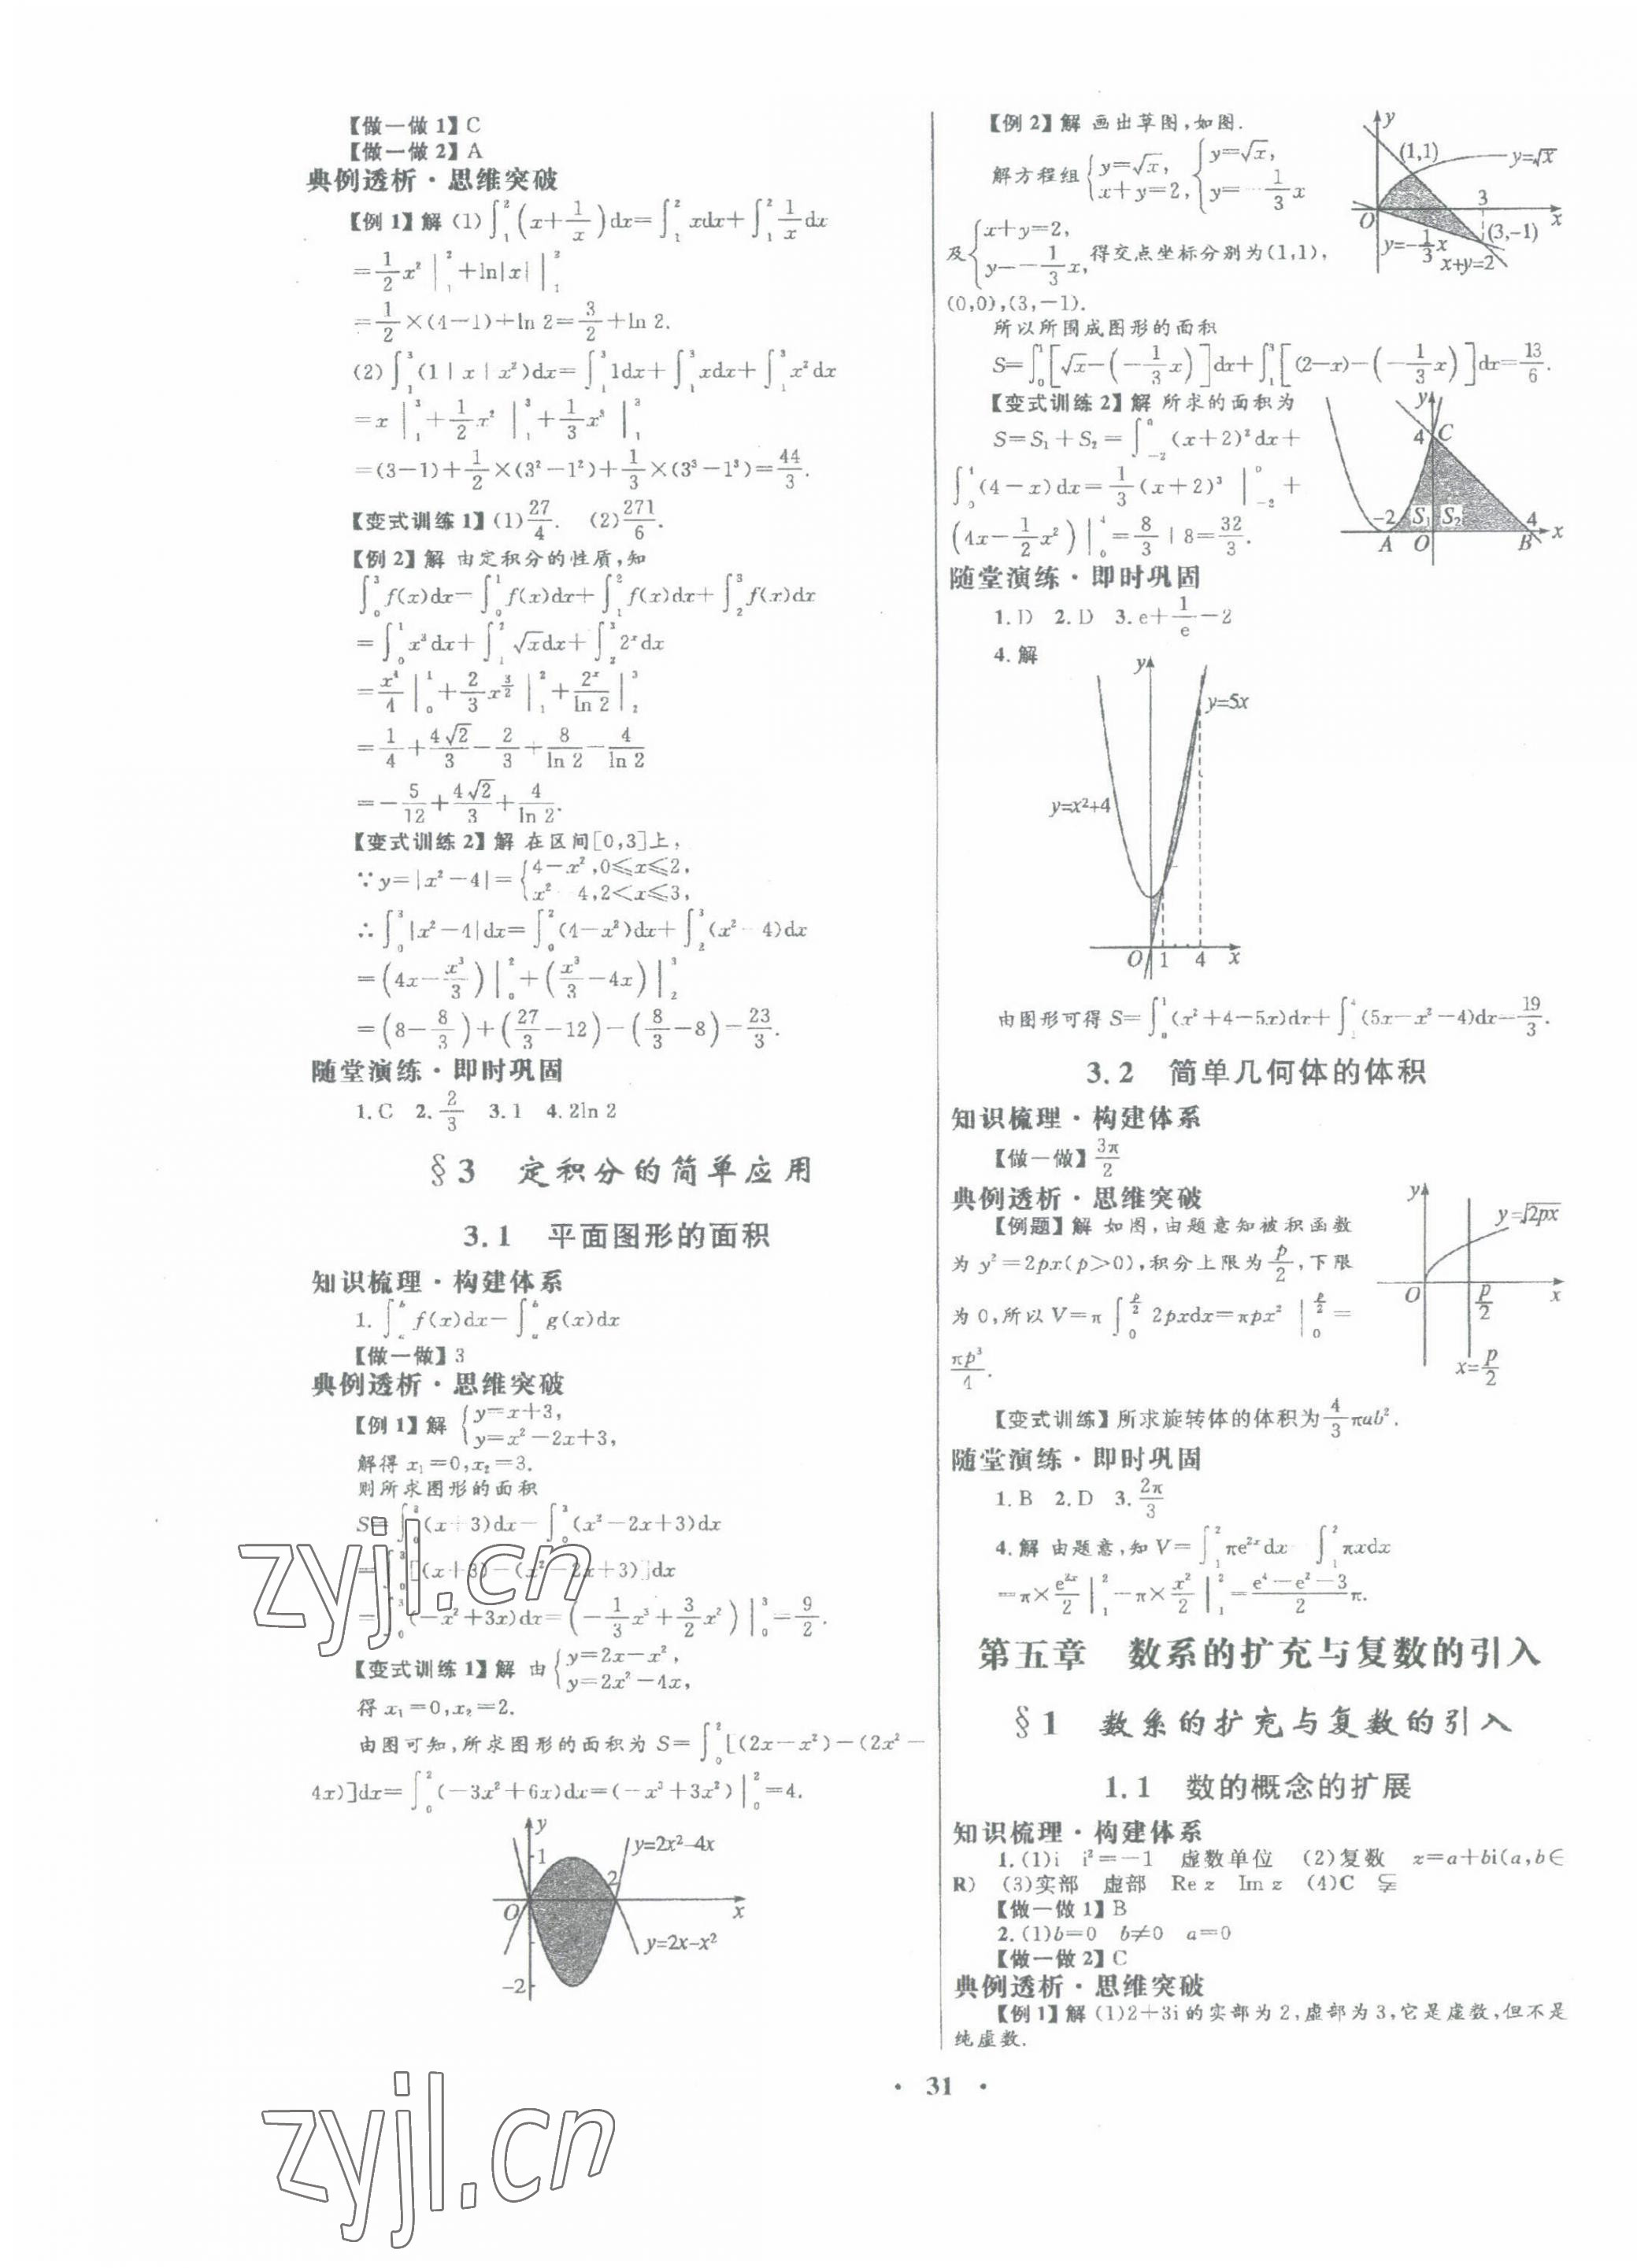 【做一做 1】C
【做一做 2】A
典例透析·思维突破
【例 1】解 (1)∫₁²(x+1/x)dx=∫₁²xdx+∫₁²1/x dx
=1/2x²|₁²+ln|x||₁²
=1/2×(4-1)+ln 2=3/2+ln 2.
(2)∫₁³(1+x+x²)dx=∫₁³1dx+∫₁³xdx+∫₁³x²dx
=x|₁³+1/2x²|₁³+1/3x³|₁³
=(3-1)+1/2×(3²-1²)+1/3×(3³-1³)=44/3.
【变式训练1】(1)27/4. (2)271/6.
【例 2】解 由定积分的性质,知
∫₀³f(x)dx=∫₀¹f(x)dx+∫₁²f(x)dx+∫₂³f(x)dx
=∫₀¹x³dx+∫₁²√xdx+∫₂³2ˣdx
=x⁴/4|₀¹+2/3x^(3/2)|₁²+2ˣ/ln 2|₂³
=1/4+4√2/3-2/3+8/ln 2-4/ln 2
=-5/12+4√2/3+4/ln 2.
【变式训练 2】解 在区间[0,3]上,
∵y=|x²-4|={4-x²,0≤x≤2,
x²-4,2<x≤3,
∴∫₀³|x²-4|dx=∫₀²(4-x²)dx+∫₂³(x²-4)dx
=(4x-x³/3)|₀²+(x³/3-4x)|₂³
=(8-8/3)+(27/3-12)-(8/3-8)=23/3.
随堂演练·即时巩固
1. C 2. 2/3 3. 1 4. 2ln 2
§3 定积分的简单应用
3.1 平面图形的面积
知识梳理·构建体系
1. ∫ₐᵇf(x)dx-∫ₐᵇg(x)dx
【做一做】3
典例透析·思维突破
【例 1】解 {y=x+3,
y=x²-2x+3,
解得 x₁=0,x₂=3.
则所求图形的面积
S=∫₀³(x+3)dx-∫₀³(x²-2x+3)dx
=∫₀³[(x+3)-(x²-2x+3)]dx
=∫₀³(-x²+3x)dx=(-1/3x³+3/2x²)|₀³=9/2.
【变式训练1】解 由{y=2x-x²,
y=2x²-4x,
得 x₁=0,x₂=2.
由图可知,所求图形的面积为 S=∫₀²[(2x-x²)-(2x²-
4x)]dx=∫₀²(-3x²+6x)dx=(-x³+3x²)|₀²=4.
y
y=2x²-4x
1
2
O
x
y=2x-x²
-2
【例 2】解 画出草图,如图.
解方程组{y=√x,
x+y=2, {y=√x,
y=-1/3x
及{x+y=2,
y=-1/3x, 得交点坐标分别为(1,1),
(0,0),(3,-1).
y
(1,1)
y=√x
3
O
x
(3,-1)
y=-1/3x
x+y=2
所以所围成图形的面积
S=∫₀¹[√x-(-1/3x)]dx+∫₁³[(2-x)-(-1/3x)]dx=13/6.
【变式训练2】解 所求的面积为
S=S₁+S₂=∫₋₂⁰(x+2)²dx+
∫₀⁴(4-x)dx=1/3(x+2)³|₋₂⁰+
(4x-1/2x²)|₀⁴=8/3+8=32/3.
y
4
C
-2
S₁
S₂
4
A
O
B
x
随堂演练·即时巩固
1. D 2. D 3. e+1/e-2
4. 解
y
y=5x
y=x²+4
O
1
4
x
由图形可得 S=∫₀¹(x²+4-5x)dx+∫₁⁴(5x-x²-4)dx=19/3.
3.2 简单几何体的体积
知识梳理·构建体系
【做一做】3π/2
典例透析·思维突破
【例题】解 如图,由题意知被积函数
为 y²=2px(p>0),积分上限为p/2,下限
为 0,所以 V=π∫₀^(p/2) 2pxdx=πpx²|₀^(p/2)=
πp³/4.
y
y=√2px
O
p/2
x
x=p/2
【变式训练】所求旋转体的体积为4/3πab².
随堂演练·即时巩固
1. B 2. D 3. 2π/3
4. 解 由题意,知 V=∫₁²πe²ˣdx-∫₁²πxdx
=π×e²ˣ/2|₁²-π×x²/2|₁²=(e⁴-e²-3)/2 π.
第五章 数系的扩充与复数的引入
§1 数系的扩充与复数的引入
1.1 数的概念的扩展
知识梳理·构建体系
1. (1)i i²=-1 虚数单位 (2)复数 z=a+bi(a,b∈
R) (3)实部 虚部 Re z Im z (4)C ⫋
【做一做 1】B
2. (1)b=0 b≠0 a=0
【做一做 2】C
典例透析·思维突破
【例 1】解 (1)2+3i 的实部为 2,虚部为 3,它是虚数,但不是
纯虚数.
· 31 ·
zyjl.cn
zyjl.cn